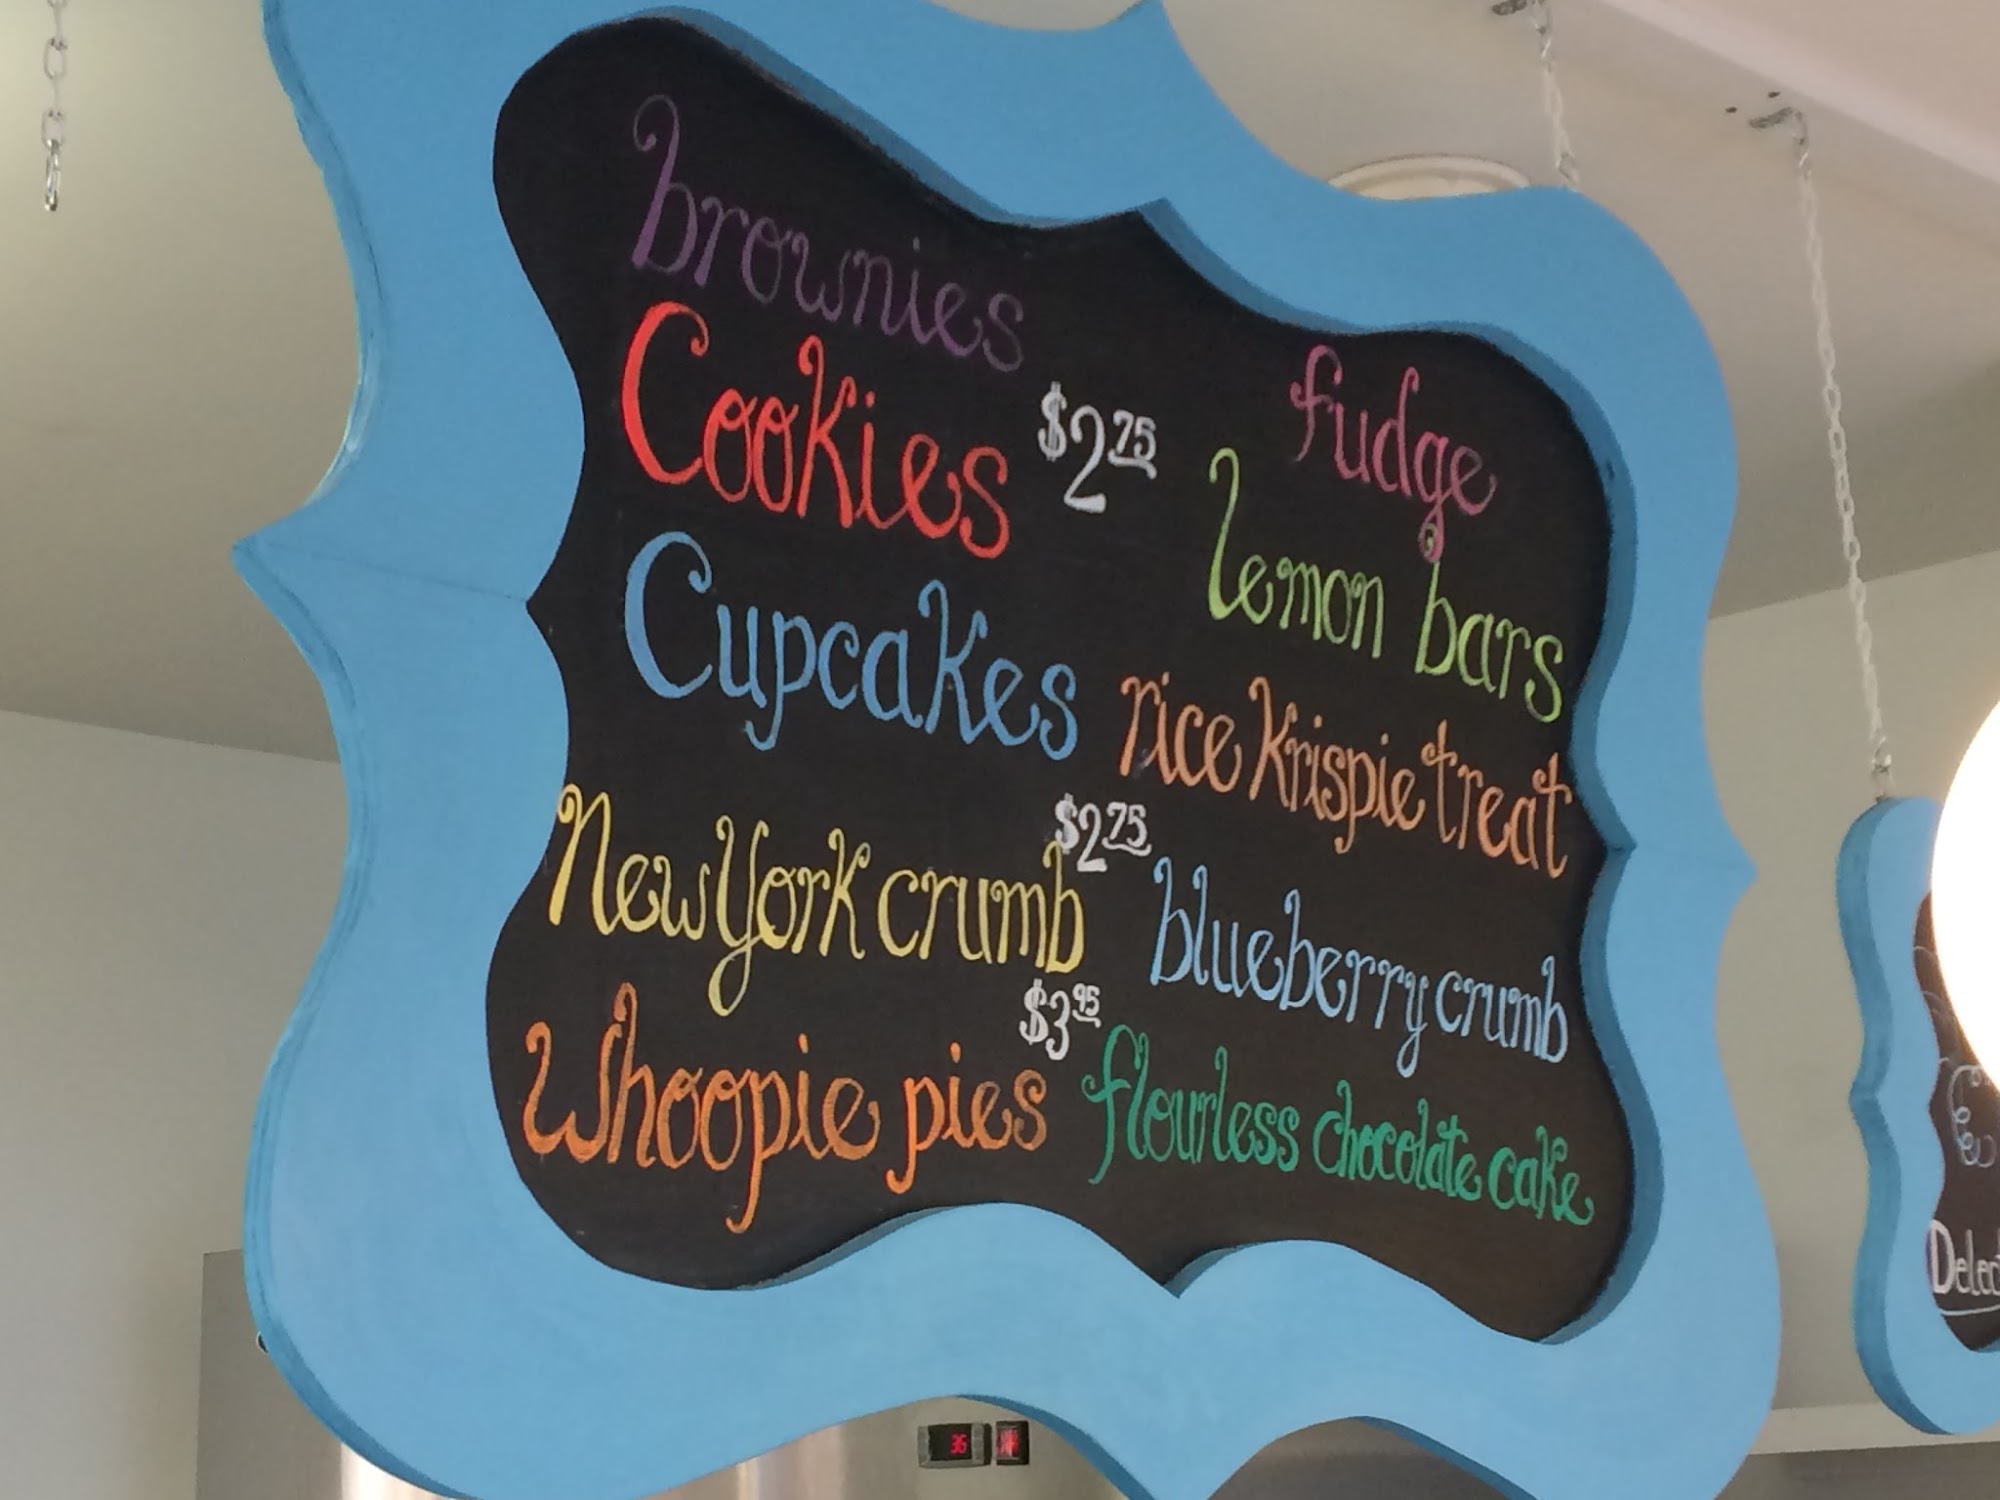 brownies
Cookies $2.75
Cupcakes
New York crumb $2.75
Whoopie pies $3.95
fudge
lemon bars
rice Krispie treat
blueberry crumb
flourless chocolate cake
36
Delect